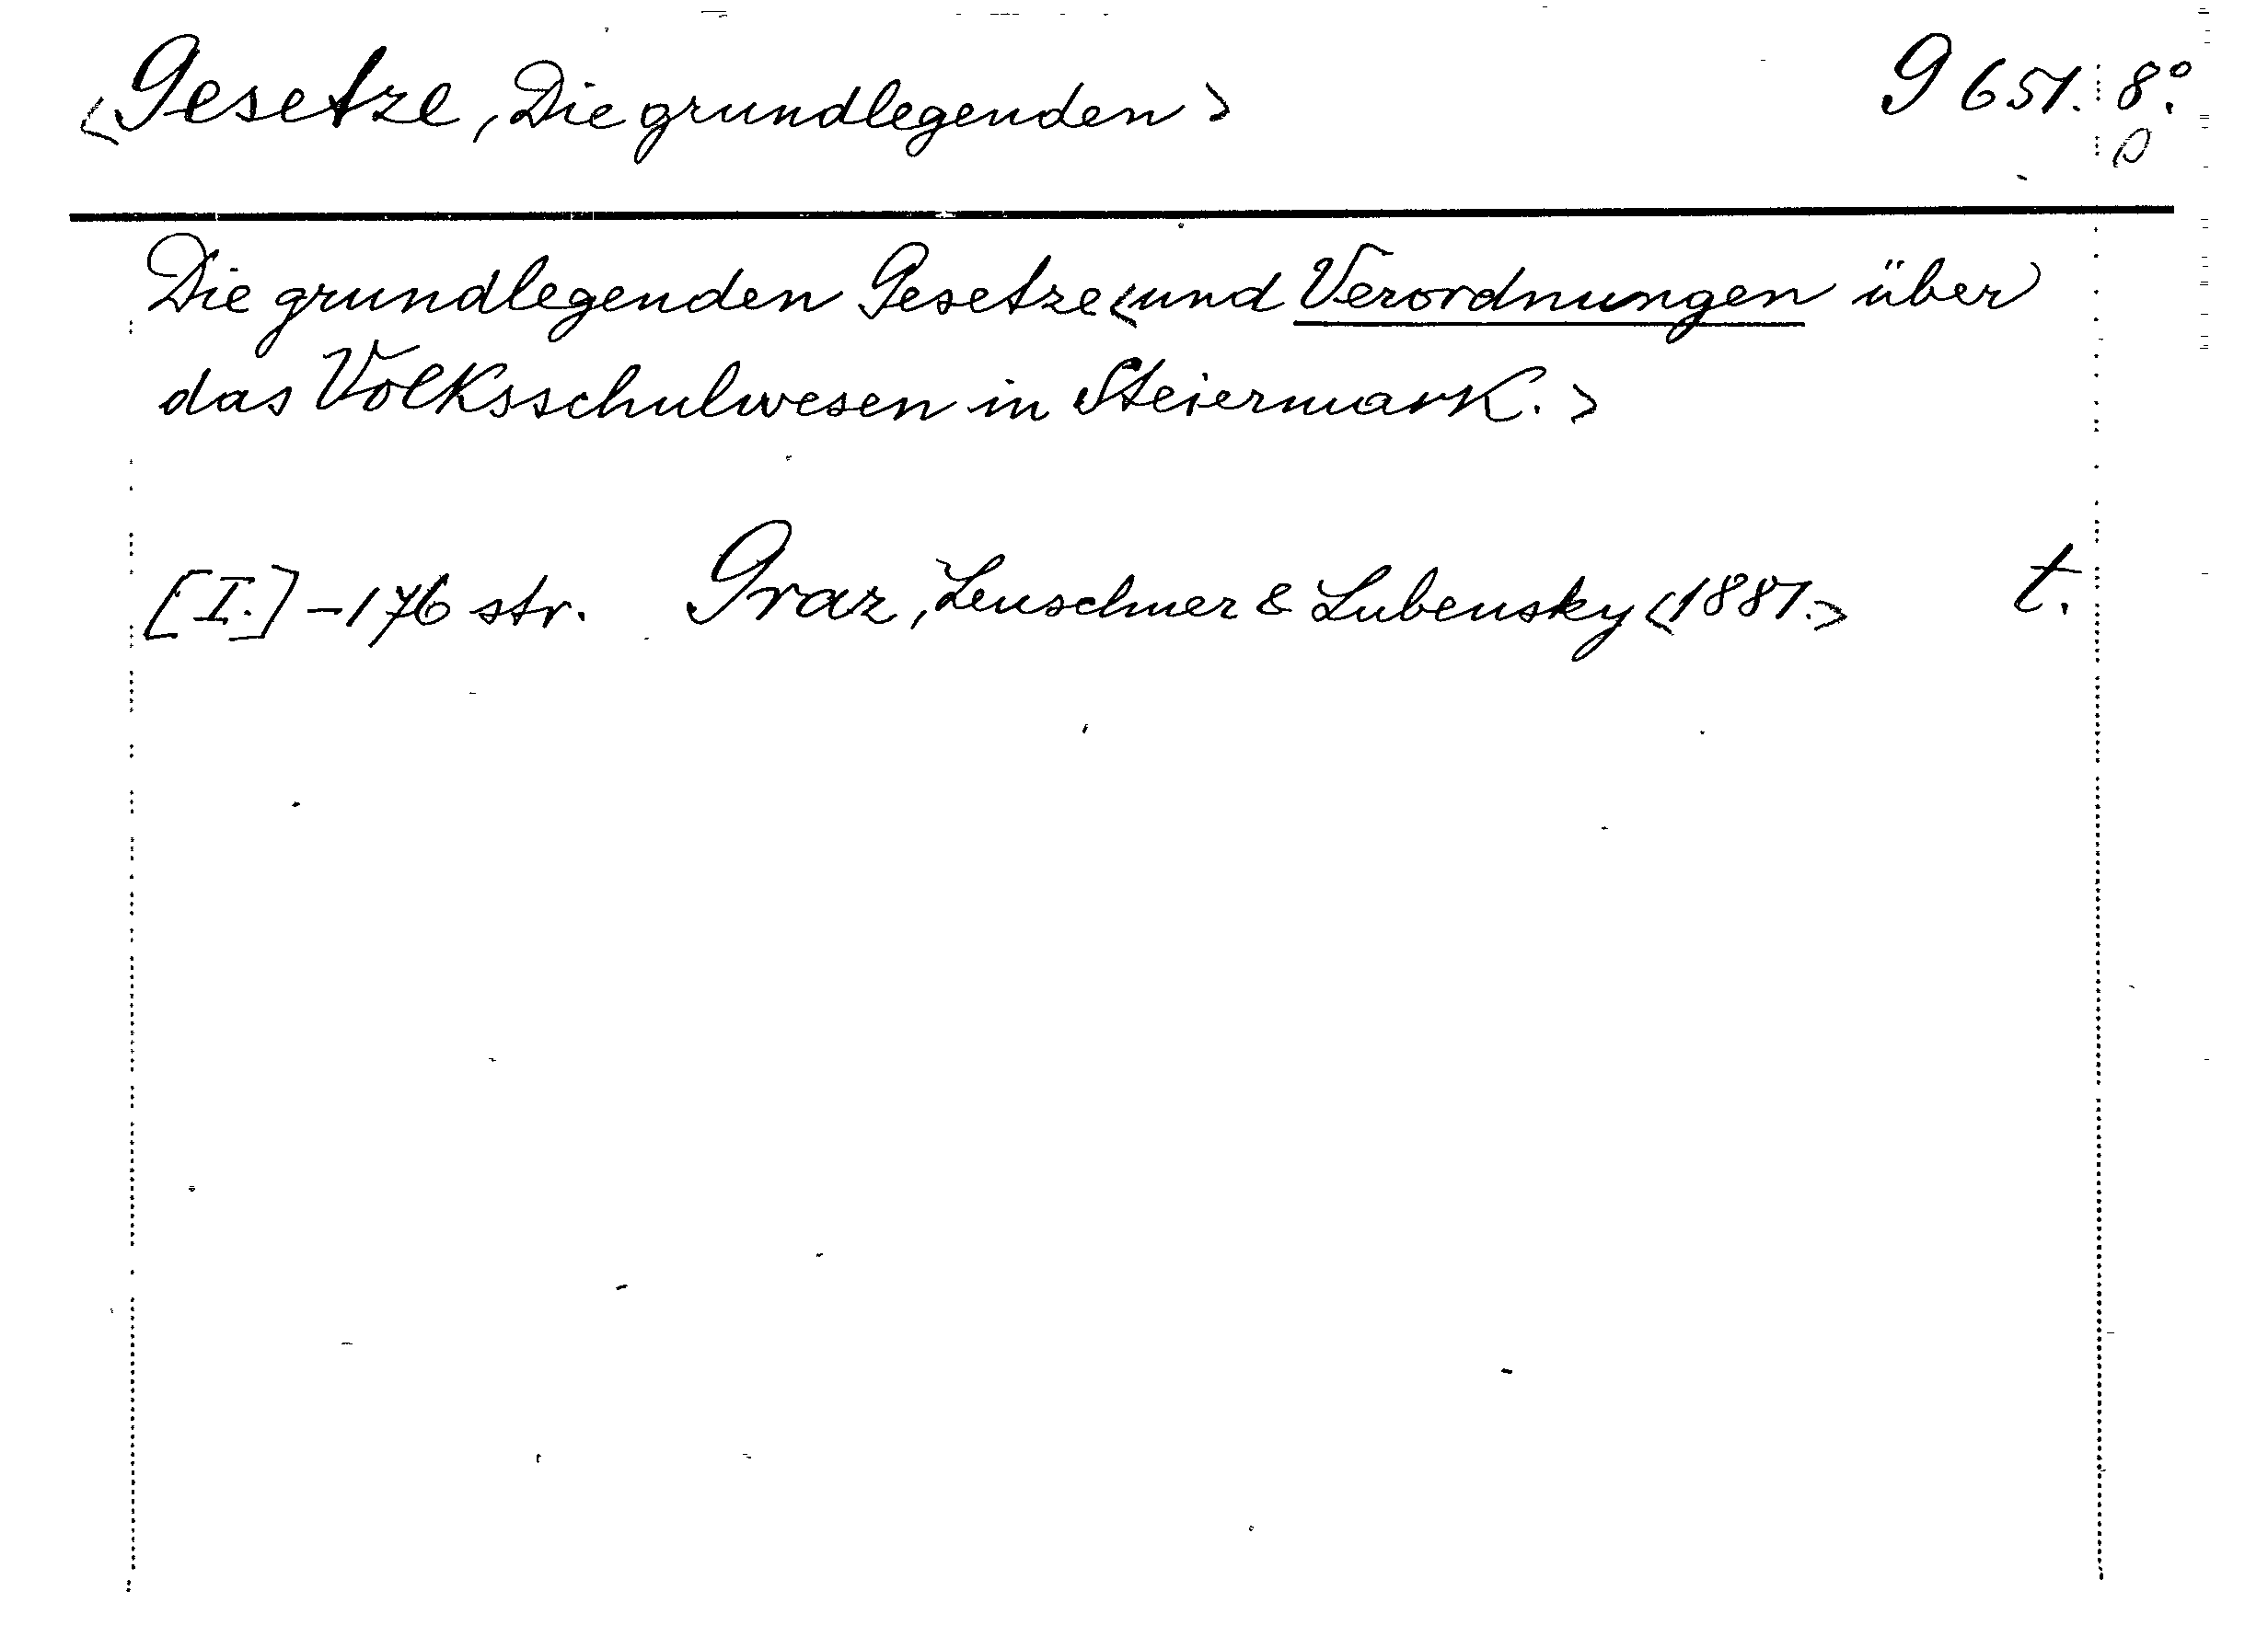 <Gesetze, Die grundlegenden> 9651. 8º.
Die grundlegenden Gesetze <und Verordnungen über
das Volksschulwesen in Steiermark.>
[I.] - 176 str. Graz, Leuschner & Lubensky <1881.> t.